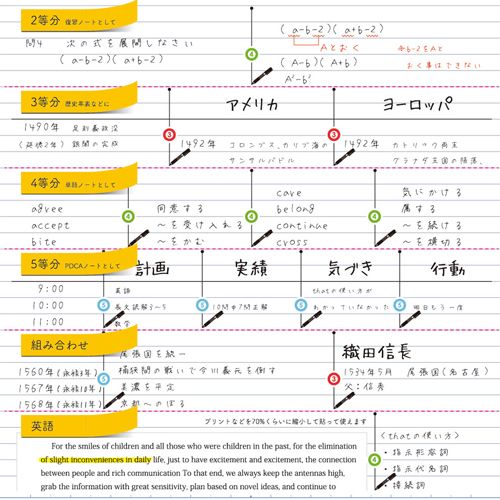 2等分 復習ノートとして
問4 次の式を展開しなさい
(a-b-2)(a+b-2)
(a-b-2)(a+b-2)
Aとおく
(A-b)(A+b)
A²-b²
※b-2をAと
おく事はできない
3等分 歴史年表などに
アメリカ
ヨーロッパ
1490年 足利義政没
(延徳2年) 銀閣の完成
1492年 コロンブス、カリブ海の
サンサルバドル
1492年 カトリック両王
グラナダ王国の陥落、
4等分 単語ノートとして
agree 同意する
accept ～を受け入れる
bite ～をかむ
cave 気にかける
belong 属する
continue ～を続ける
cross ～を横切る
5等分 PDCAノートとして
計画 実績 気づき 行動
9:00 英語
10:00 長文読解3-5
11:00 数学
10問中7問正解
thatの使い方が
わかっていなかった
明日もう一度
組み合わせ
尾張国を統一
1560年(永禄3年) 桶狭間の戦いで今川義元を倒す
1567年(永禄10年) 美濃を平定
1568年(永禄11年) 京都へのぼる
織田信長
1534年5月 尾張国(名古屋)
父:信秀
英語
プリントなどを70%くらいに縮小して貼って使えます
For the smiles of children and all those who were children in the past, for the elimination
of slight inconveniences in daily life, just to have excitement and excitement, the connection
between people and rich communication To that end, we always keep the antennas high,
grab the information with great sensitivity, plan based on novel ideas, and continue to
<thatの使い方>
・指示形容詞
・指示代名詞
・接続詞